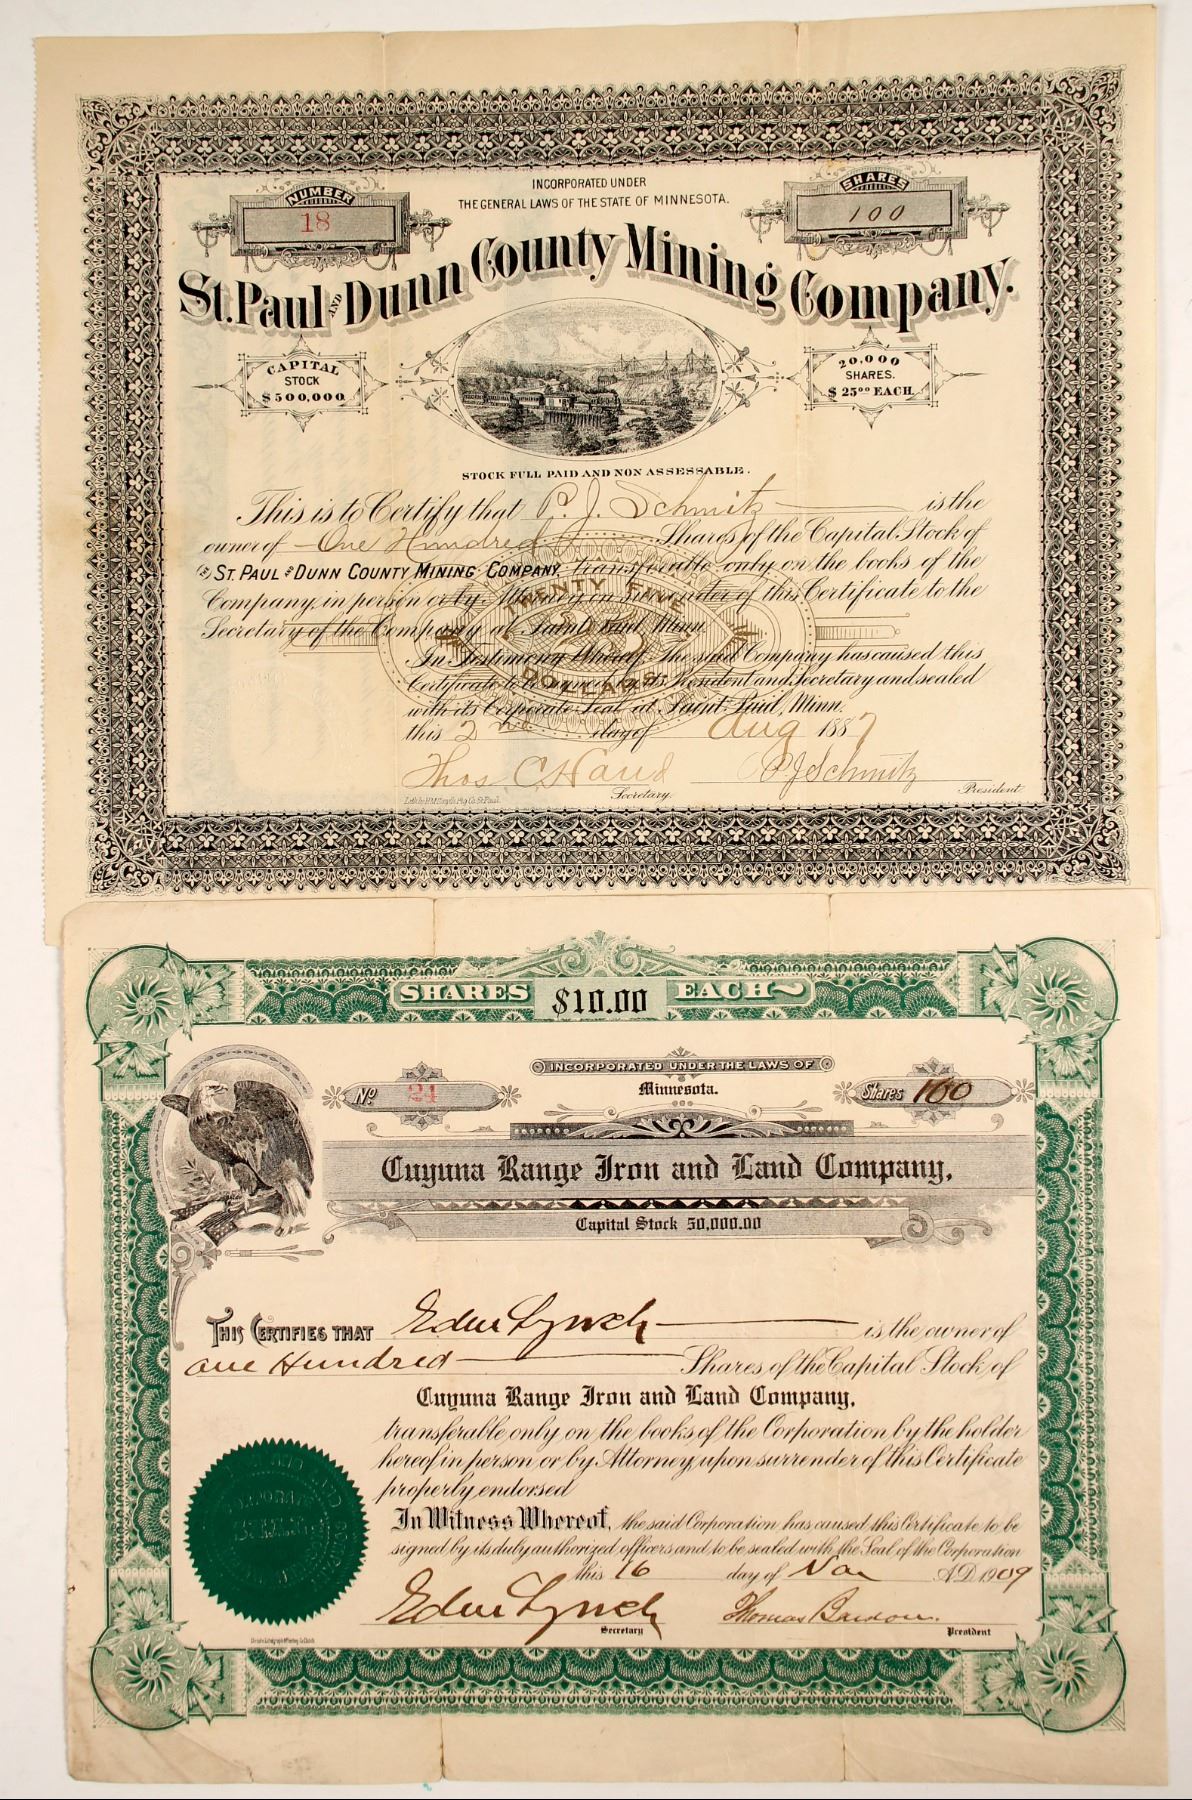 INCORPORATED UNDER
THE GENERAL LAWS OF THE STATE OF MINNESOTA.
NUMBER
18
SHARES
100
St. Paul AND Dunn County Mining Company.
CAPITAL
STOCK
$500,000
20,000
SHARES.
$25.00 EACH.
STOCK FULL PAID AND NON ASSESSABLE.
This is to Certify that P. J. Schmitz is the
owner of One Hundred Shares of the Capital Stock of
THE ST. PAUL AND DUNN COUNTY MINING COMPANY, transferable only on the books of the
Company, in person or by Attorney on surrender of this Certificate to the
Secretary of the Company at Saint Paul, Minn.
TWENTY FIVE
DOLLARS
In Testimony Whereof, The said Company has caused this
Certificate to be signed by its President and Secretary and sealed
with its Corporate Seal at Saint Paul, Minn.
this 2nd day of Aug 1887
Thos. C. P. J. Schmitz
Secretary. President
SHARES $10.00 EACH
INCORPORATED UNDER THE LAWS OF
Minnesota.
No 24
Shares 100
Cuyuna Range Iron and Land Company,
Capital Stock 50,000.00
THIS CERTIFIES THAT Lynch is the owner of
One Hundred Shares of the Capital Stock of
Cuyuna Range Iron and Land Company,
transferable only on the books of the Corporation by the holder
hereof in person or by Attorney upon surrender of this Certificate
properly endorsed
In Witness Whereof, the said Corporation has caused this Certificate to be
signed by its duly authorized officers and to be sealed with the Seal of the Corporation
this 16 day of Nov A.D. 1909
Lynch Thomas
Secretary President